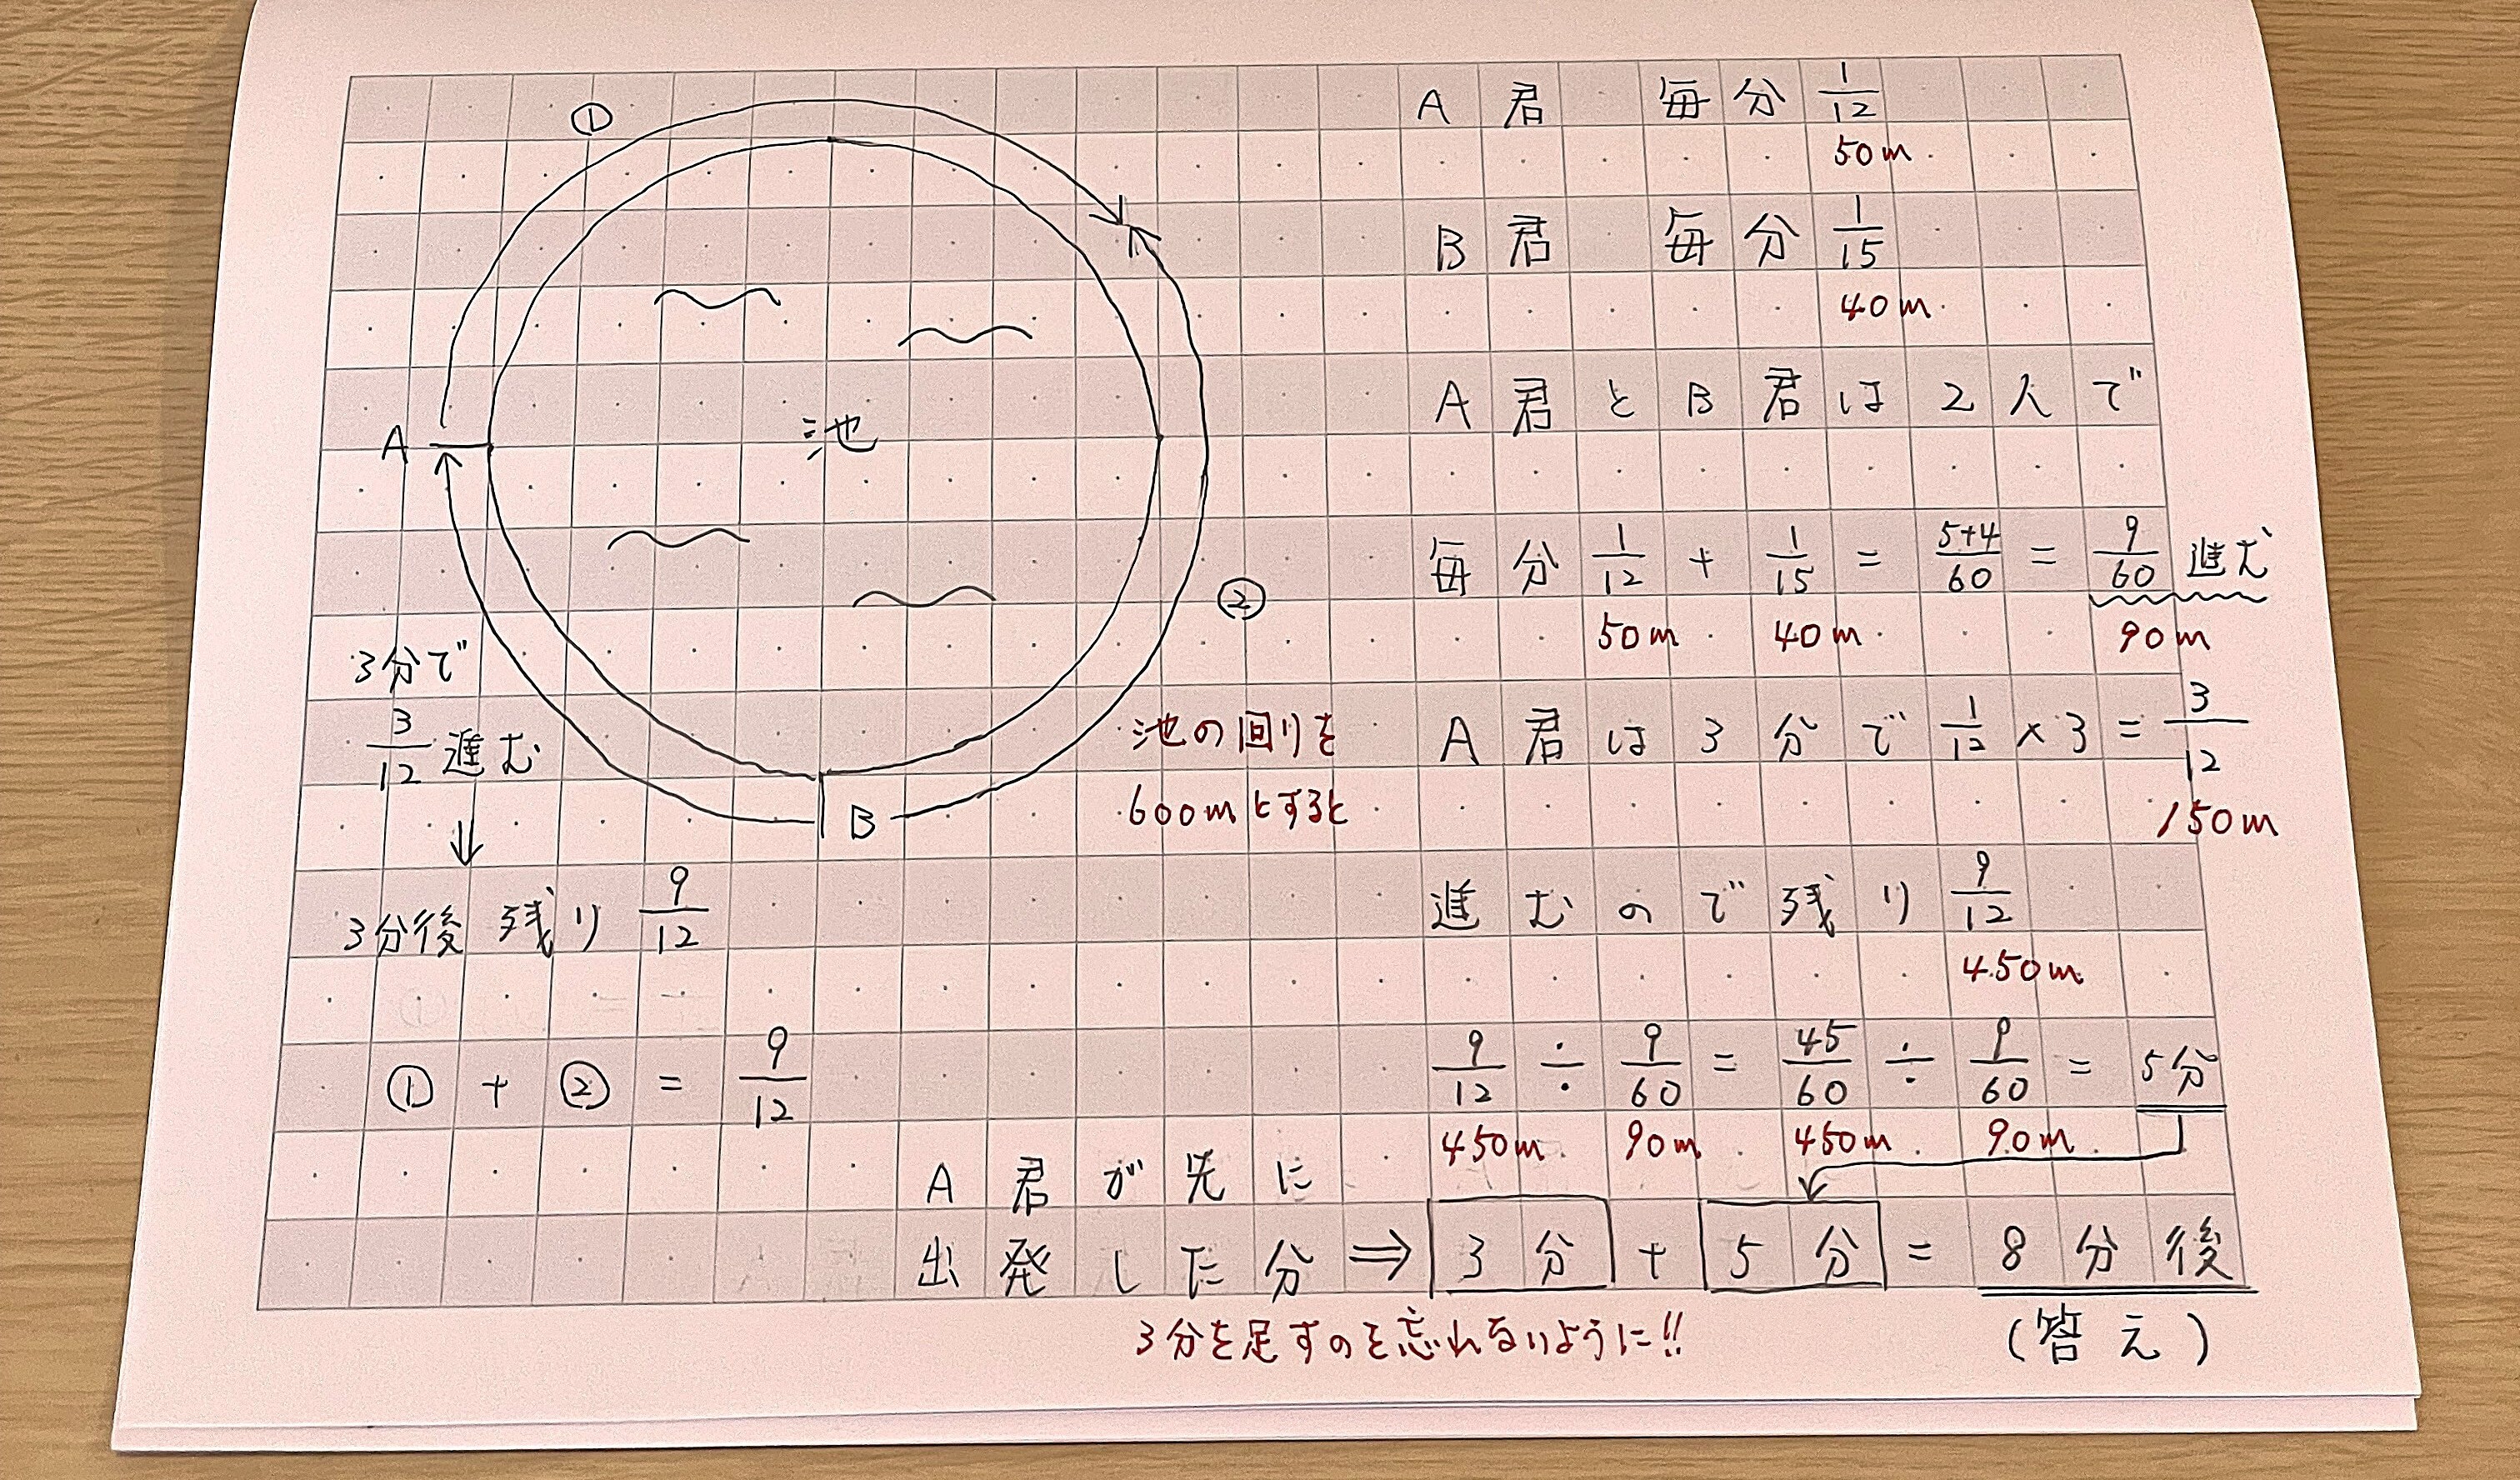 ①
A
池
B
②
3分で
3/12 進む
↓
3分後 残り 9/12
① + ② = 9/12
池の回りを
600mとすると
A君 毎分 1/12
50m
B君 毎分 1/15
40m
A君とB君は2人で
毎分 1/12 + 1/15 = 5+4/60 = 9/60 進む
50m 40m 90m
A君は3分で 1/12 × 3 = 3/12
150m
進むので残り 9/12
450m
9/12 ÷ 9/60 = 45/60 ÷ 9/60 = 5分
450m 90m 450m 90m
A君が先に
出発した分 ⇒ 3分 + 5分 = 8分後
3分を足すのを忘れないように!!
(答え)